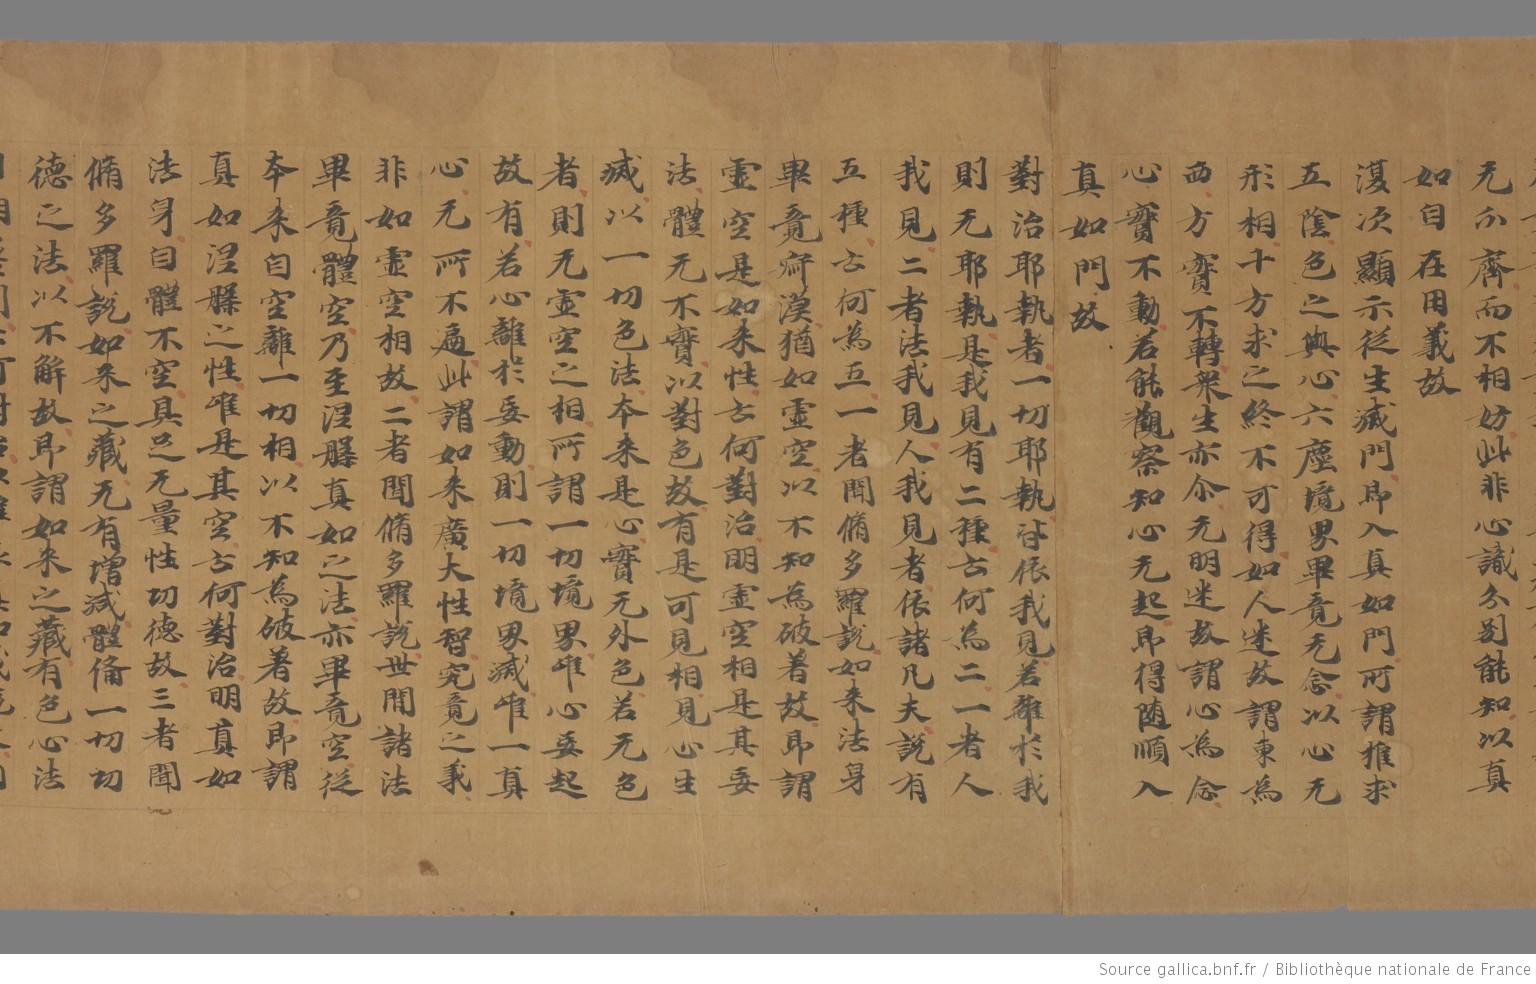 无分齊而不相妨此非心識分別能知以真
如自在用義故
復次顯示從生滅門即入真如門所謂推求
五陰色之與心六塵境界畢竟无念以心无
形相十方求之終不可得如人迷故謂東為
西方實不轉衆生亦尒无明迷故謂心為念
心實不動若能觀察知心无起即得隨順入
真如門故
對治耶執者一切耶執皆依我見若離於我
則无耶執是我見有二種云何為二一者人
我見二者法我見人我見者依諸凡夫說有
五種云何為五一者聞脩多羅說如来法身
畢竟㝎漠猶如虛空以不知為破著故即謂
虛空是如来性云何對治明虛空相是其妄
法體无不實以對色故有是可見相見心生
滅以一切色法本来是心實无外色若无色
者則无虛空之相所謂一切境界唯心妄起
故有若心離於妄動則一切境界滅唯一真
心无所不遍此謂如来廣大性智究竟之義
非如虛空相故二者聞脩多羅說世間諸法
畢竟體空乃至涅槃真如之法亦畢竟空從
本来自空離一切相以不知為破著故即謂
真如涅槃之性唯是其空云何對治明真如
法身自體不空具足无量性功德故三者聞
脩多羅說如来之藏无有增減體俻一切切
德之法以不解故即謂如来之藏有色心法
Source gallica.bnf.fr / Bibliothèque nationale de France